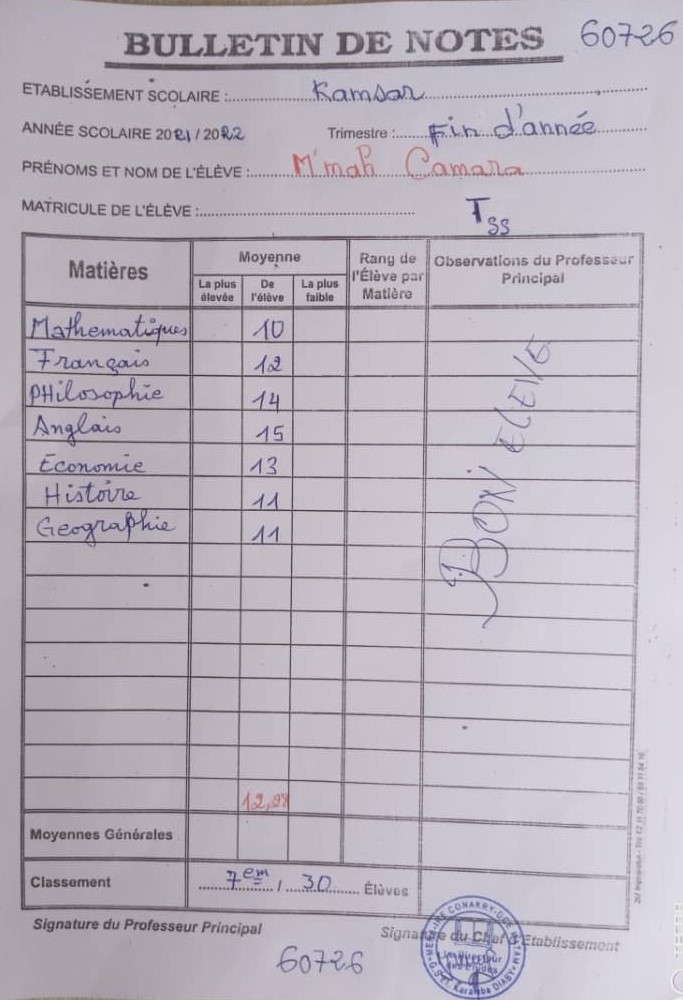 BULLETIN DE NOTES 60726
ETABLISSEMENT SCOLAIRE : Kamsar
ANNÉE SCOLAIRE 2021/2022 Trimestre : Fin d'année
PRÉNOMS ET NOM DE L'ÉLÈVE : M'mah Camara
MATRICULE DE L'ÉLÈVE :
TSS
Matières Moyenne Rang de l'Élève par Matière Observations du Professeur Principal
La plus élevée De l'élève La plus faible
Mathematiques 10
Français 12
PHilosophie 14
Anglais 15
Économie 13
Histoire 11
Geographie 11
BON ELEVE
12,98
Moyennes Générales
Classement 7em / 30 Élèves
Signature du Professeur Principal Signature du Chef d'Etablissement
60726